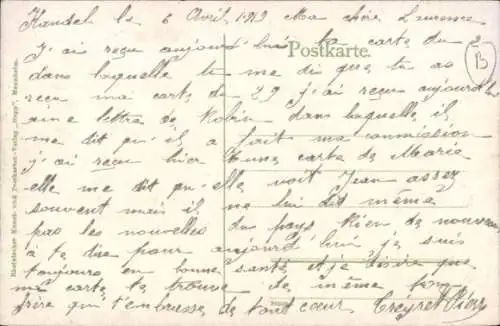 Kandel le 6 Avril 1919 Ma chère Laurence
J'ai reçu aujourd'hui ta carte du 2
Postkarte.
B
dans laquelle tu me dis que tu as
reçu ma carte du 29 j'ai reçu aujourd'hui
une lettre de Robin dans laquelle il
me dit qu'il a fait ma commission
j'ai reçu hier une carte de Marie
elle me dit qu-elle voit Jean assez
souvent mais il ne lui dit même
pas les nouvelles du pays Rien de nouveau
à te dire pour aujourd'hui je suis
toujours en bonne santé et je désire que
ma carte te trouve de même ton
frère qui t'embrasse de tout coeur
Rheinischer Kunst- und Postkarten-Verlag Mannheim.